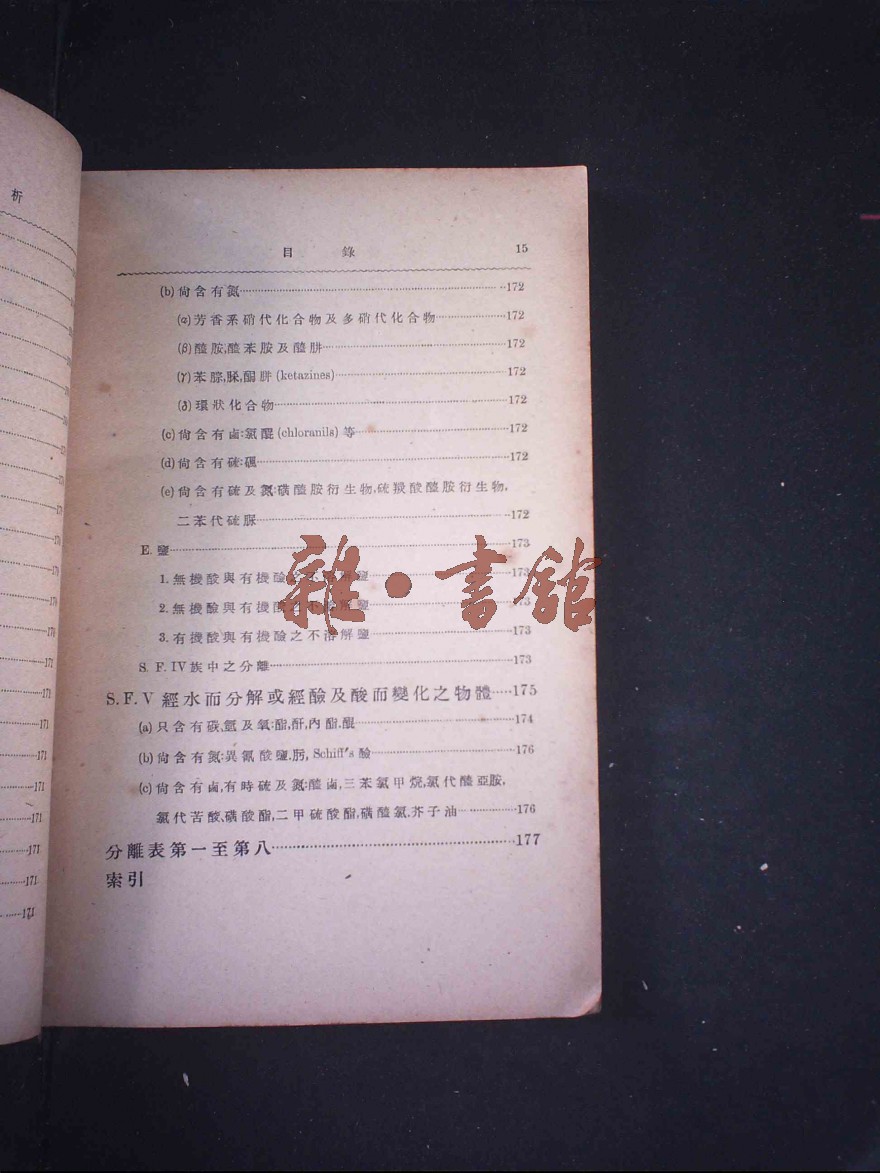 析
目 錄 15
(b) 尙含有氮 172
(α) 芳香系硝代化合物及多硝代化合物 172
(β) 醯胺,醯苯胺及醯肼 172
(γ) 苯腙,脎,酮肼 (ketazines) 172
(δ) 環狀化合物 172
(c) 尙含有鹵:氯醌 (chloranils) 等 172
(d) 尙含有硫:碸 172
(e) 尙含有硫及氮:磺醯胺衍生物,硫羰酸醯胺衍生物,
二苯代硫脲 172
E. 鹽 173
1. 無機酸與有機鹼之不溶解鹽 173
2. 無機鹼與有機酸之不溶解鹽 173
3. 有機酸與有機鹼之不溶解鹽 173
S. F. IV 族中之分離 173
S. F. V 經水而分解或經鹼及酸而變化之物體 175
(a) 只含有碳,氫及氧:酯,酐,內酯,醌 174
(b) 尙含有氮:異氰酸鹽,肟, Schiff's 鹼 176
(c) 尙含有鹵,有時硫及氮:醯鹵,三苯氯甲烷,氯代醯亞胺,
氯代苦酸,磺酸酯,二甲硫酸酯,磺醯氯,芥子油 176
分離表第一至第八 177
索引
雜·書館